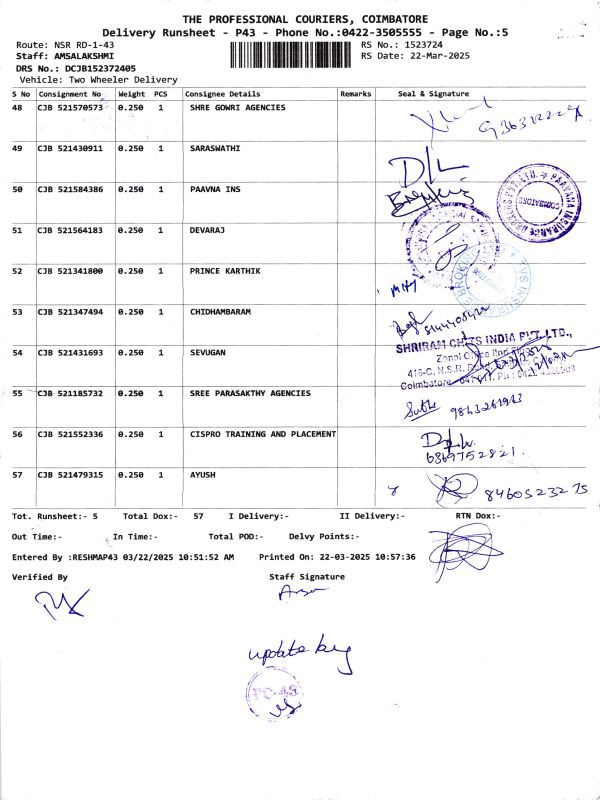 THE PROFESSIONAL COURIERS, COIMBATORE
Delivery Runsheet - P43 - Phone No.:0422-3505555 - Page No.:5
Route: NSR RD-1-43 RS No.: 1523724
Staff: AMSALAKSHMI RS Date: 22-Mar-2025
DRS No.: DCJB152372405
Vehicle: Two Wheeler Delivery
S No Consignment No Weight PCS Consignee Details Remarks Seal & Signature
48 CJB 521570573 0.250 1 SHRE GOWRI AGENCIES
49 CJB 521430911 0.250 1 SARASWATHI
D/L
50 CJB 521584386 0.250 1 PAAVNA INS
COIMBATORE
51 CJB 521564183 0.250 1 DEVARAJ
52 CJB 521341800 0.250 1 PRINCE KARTHIK
53 CJB 521347494 0.250 1 CHIDHAMBARAM
54 CJB 521431693 0.250 1 SEVUGAN
SHRIRAM CHITS INDIA PVT. LTD.,
Zonal Office
416-C, N.S.R.
Coimbatore
55 CJB 521185732 0.250 1 SREE PARASAKTHY AGENCIES
56 CJB 521552336 0.250 1 CISPRO TRAINING AND PLACEMENT
6869752821
57 CJB 521479315 0.250 1 AYUSH
8460523275
Tot. Runsheet:- 5 Total Dox:- 57 I Delivery:- II Delivery:- RTN Dox:-
Out Time:- In Time:- Total POD:- Delvy Points:-
Entered By :RESHMAP43 03/22/2025 10:51:52 AM Printed On: 22-03-2025 10:57:36
Verified By Staff Signature
update by
PC-43